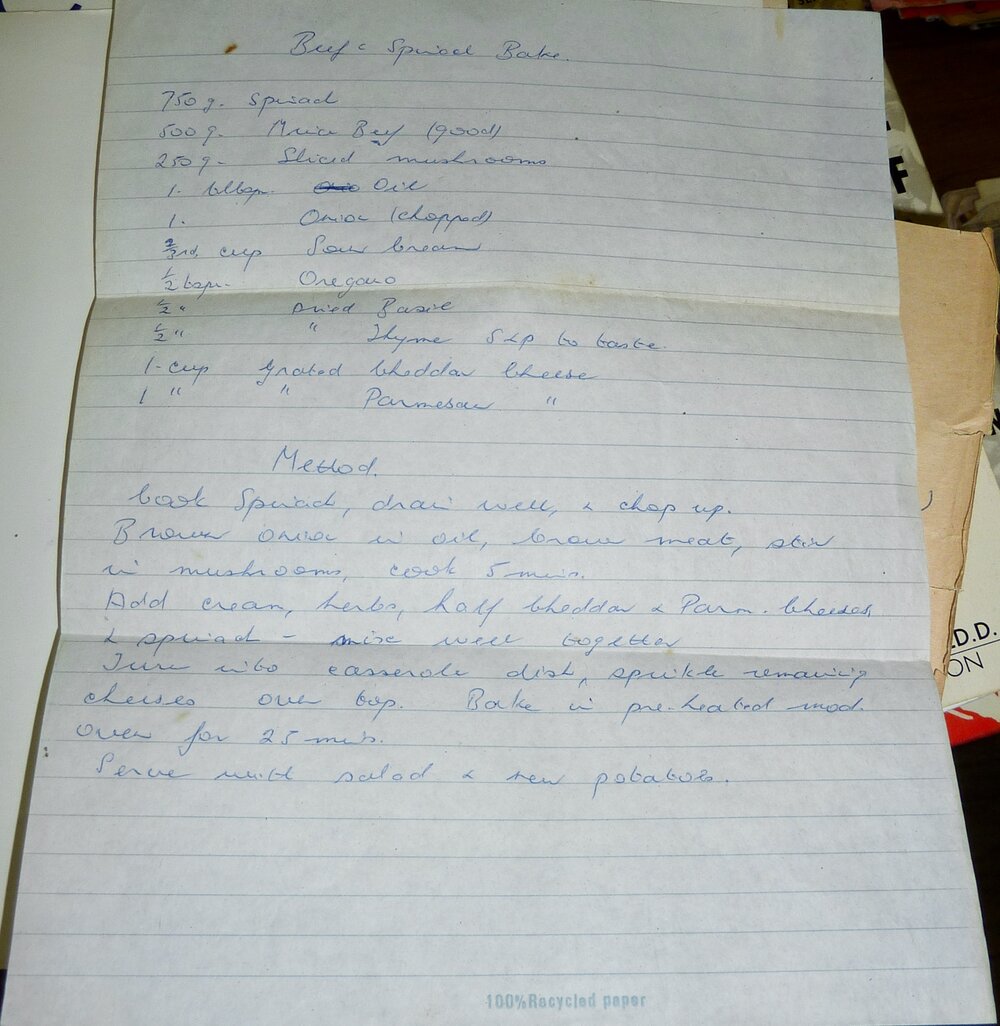 Beef & Spinach Bake.
750 g. Spinach
500 g. Mince Beef (good)
250 g. Sliced mushrooms
1. tblsp. Oil
1. Onion (chopped)
2/3rd. cup Sour Cream
1/2 tspn. Oregano
1/2 " Dried Basil
1/2 " " Thyme S & P to taste.
1 - cup Grated Cheddar Cheese
1 " " Parmesan "
Method.
Cook Spinach, drain well, & chop up.
Brown onion in oil, brown meat, stir
in mushrooms, cook 5 mins.
Add cream, herbs, half Cheddar & Parm. Cheeses,
& spinach - mix well together
Turn into casserole dish, sprinkle remaining
cheeses over top. Bake in pre-heated mod.
oven for 25 mins.
Serve with salad & new potatoes.
100% Recycled paper
F
.D.D.
ON